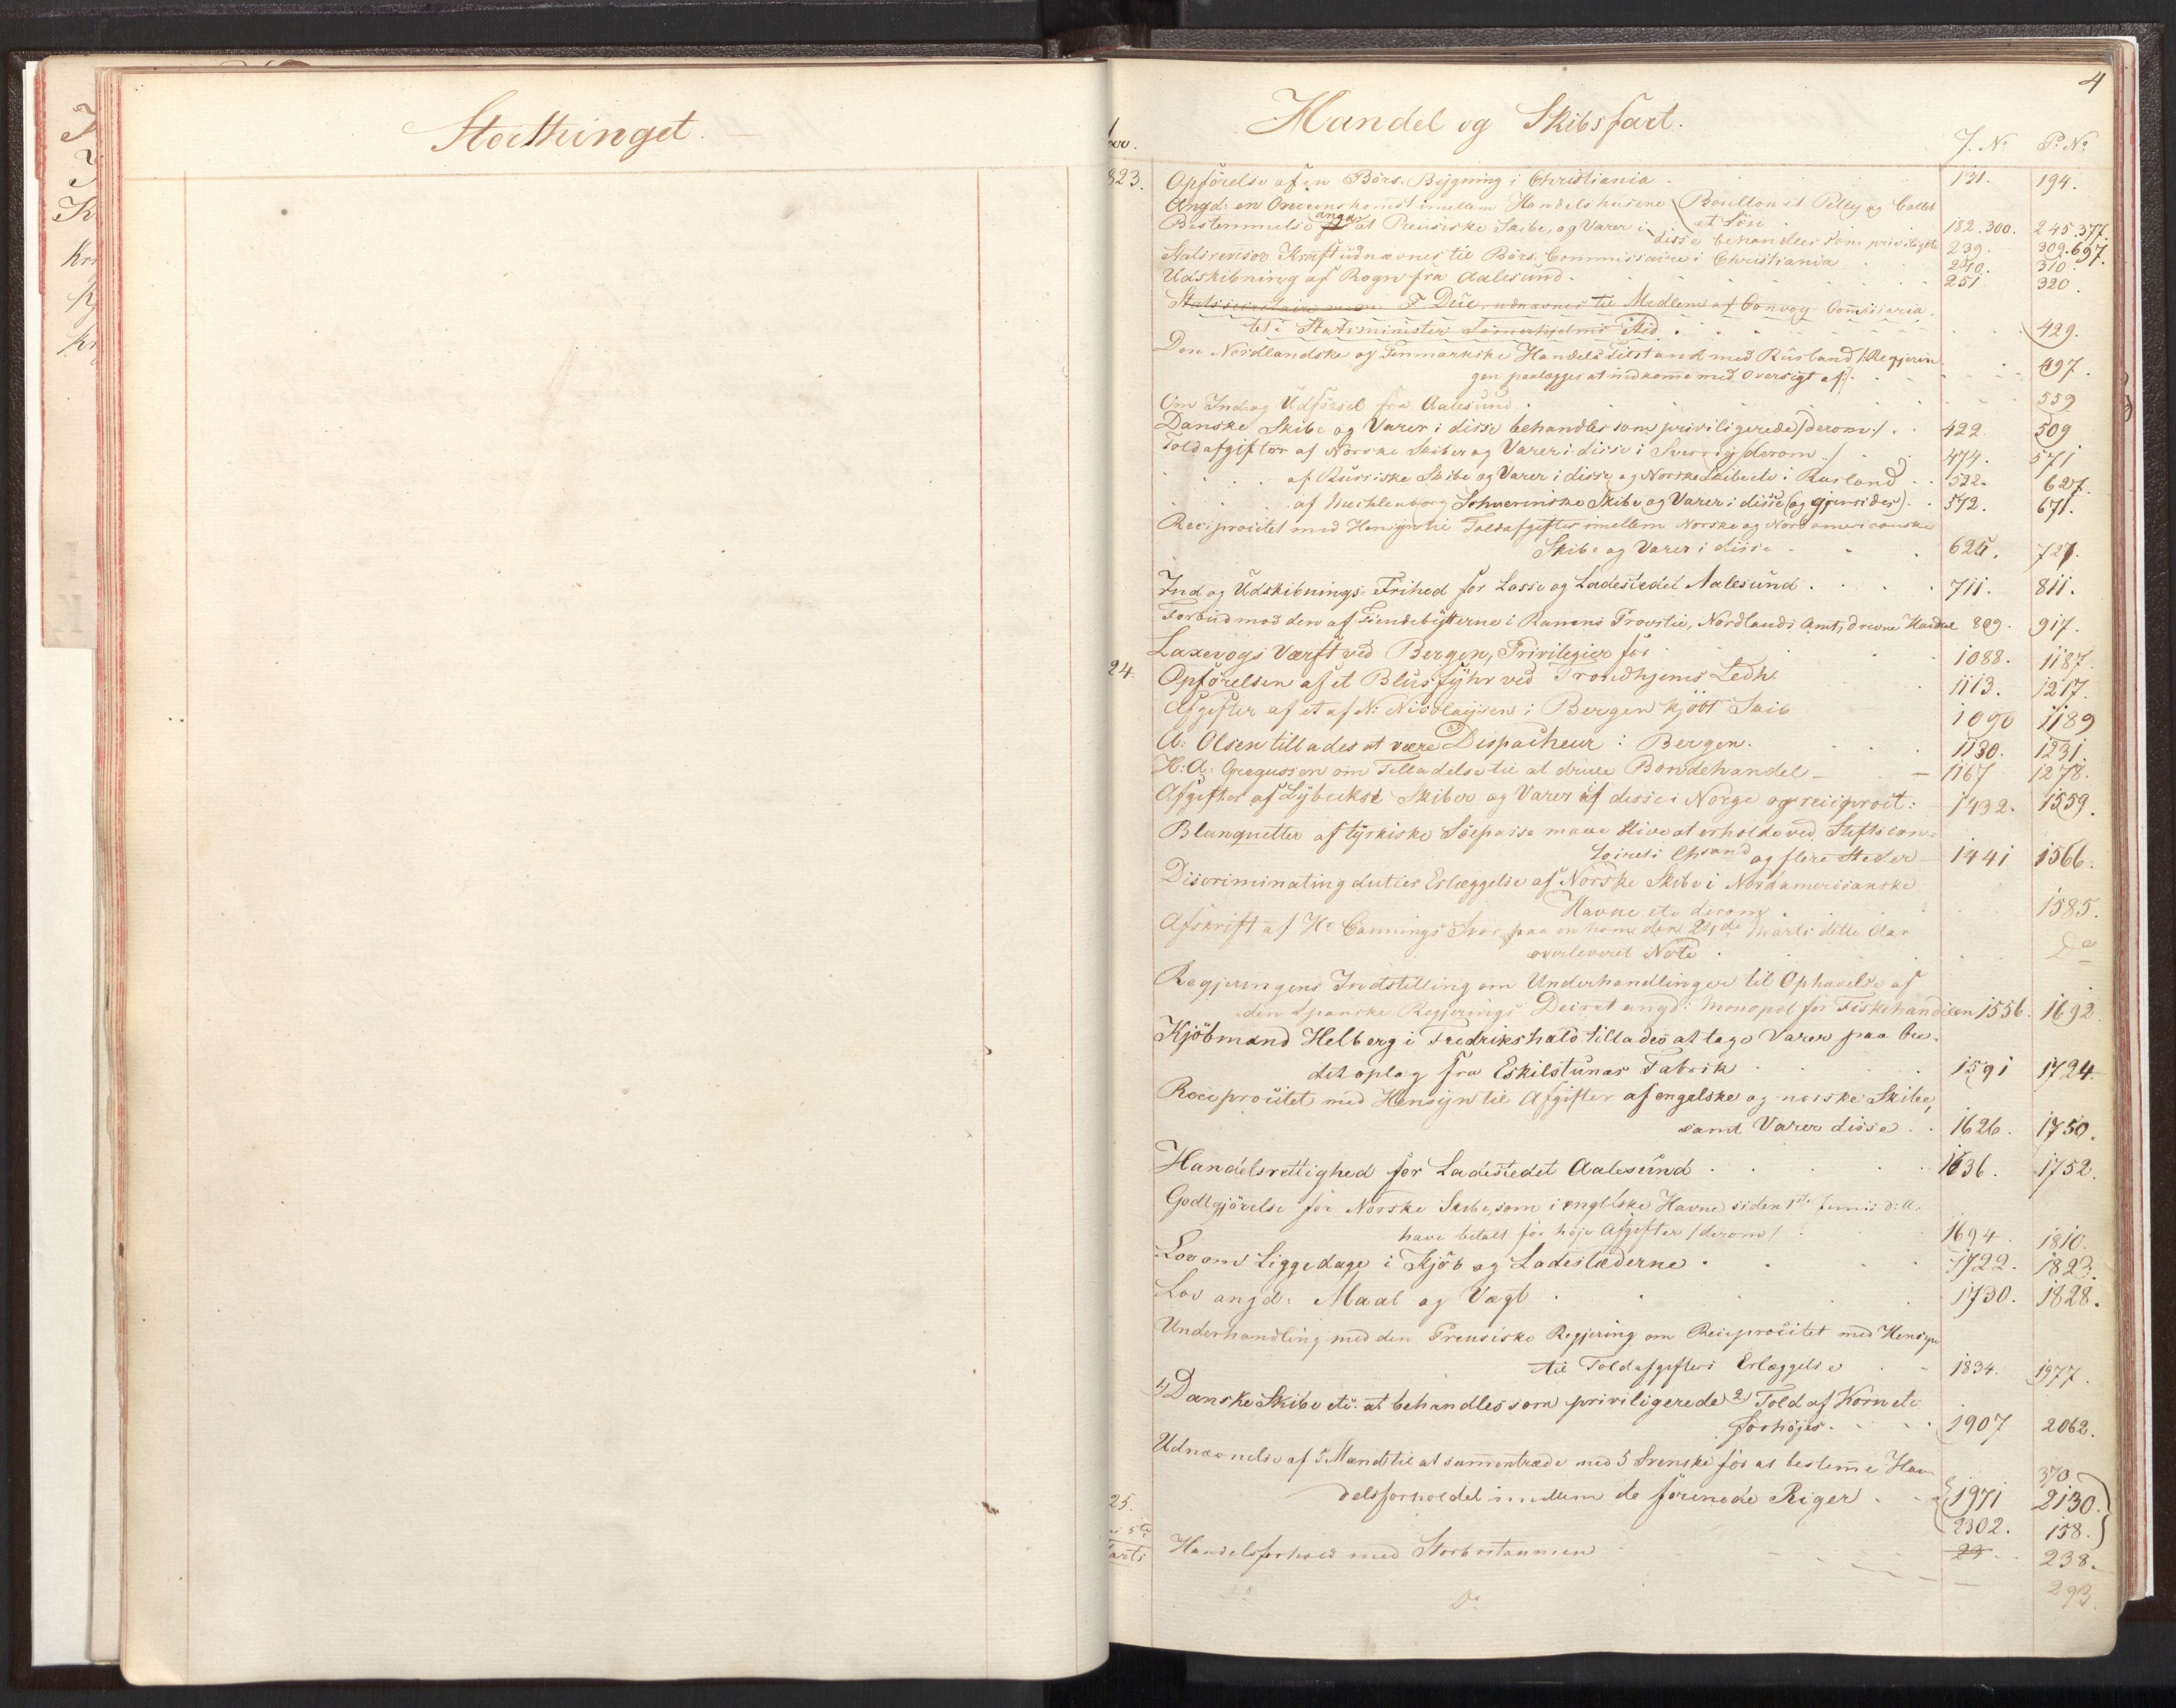 Storthinget.
4
Handel og Skibsfart.
J. No P. No
823. Opförelse af en Börs-Bygning i Christiania 131. 194.
Angd: en Overeenskomst imellem Handelshusene Boullon et Pelly og
et Sön 182.300. 245.377
Bestemmelse angd. at Preusiske Skibe, og Varer i disse behandles som priviligerede 239. 309.697.
Statsrevisor Kraft udnævnes til Börs-Commissaire i Christiania 240. 310.
Udskibning af Rogn fra Aalesund 251 320.
til Medlem af Convoy Com̄issaria-
tet i Statsminister Sted 429.
Den Nordlandske og Finmarkske Handels Tilstand med Rusland /: Regjerin
gen paalægges at indkom̄e med Oversigt af :/ 497.
Om Ind og Udförsel fra Aalesund 559
Danske Skibe og Varer i disse behandles som priviligerede /derom/ 422. 509
Toldafgifter af Norske Skibe og Varer i disse i Sverrig /derom/ 474. 571
af Russiske Skibe og Varer i disse og Norske Skibe etc i Rusland 522. 627.
af Mechlenborg Schwerinske Skibe og Varer i disse (og gjensides) 572. 671.
Reciprocitet med Hensyn til Toldafgifter imellem Norske og Nordamericanske
Skibe og Varer i disse 625. 727.
Ind og Udskibnings-Frihed for Losse og Ladestedet Aalesund 711. 811.
Forbud mod den af Fiendebyfterne i Ranens Provstie, Nordlands Amt, drevne Handel 809. 917.
Laxevogs Værft ved Bergen, Privilegier for 1088. 1187.
24. Opförelsen af et Blusfyhr ved Trondhjems Ledh. 1113. 1217.
Afgifter af et af N: Nicolaysen i Bergen kjöbt Skib 1090 1189
A: Olsen tillades at være Dispacheur i Bergen. 1130. 1231.
H: A: Gregussen om Tilladelse til at drive Bondehandel 1167 1278.
Afgifter af Lybeckse Skibe og Varer af disse i Norge og reciprocit: 1432. 1559.
Blanquetter af tyrkiske Söepasse maae blive at erholde ved Stiftscon-
toiret i Chsand og flere Steder 1441 1566.
Discriminating duties Erlæggelse af Norske Skibe i Nordamericanske
Havne etc derom 1585.
Afskrift af Hr Cannings Svar paa en ham den 24de Marts dette Aar
overleveret Note Do
Regjeringens Indstilling om Underhandlinger til Ophævelse af
den Spanske Regjerings Decret angd: Monopol for Fiskehandelen 1556. 1692
Kjöbmand Helberg i Fredrikshald tillades at tage Varer paa Cre-
ditoplag fra Eskilstunas Fabrik 1591 1724.
Reciprocitet med Hensyn til Afgifter af engelske og norske Skibe,
samt Varer disse 1626. 1750.
Handelsrettighed for Ladestedet Aalesund 1636. 1752.
Godtgjörelse for Norske Skibe, som i engelske Havne siden 1ste Junii d: A:
have betalt for höje Afgifter /derom/ 1694. 1810.
Lov om Liggedage i Kjöb og Ladestæderne 1722. 1823.
Lov angd: Maal og Vægt 1730. 1828.
Underhandling med den Preusiske Regjering om Reciprocitet med Hensyn
til Toldafgifters Erlæggelse 1834. 1977.
1) Danske Skibe etc. at behandles som priviligerede 2) Told af Korn etc
forhöjes 1907 2062.
Udnævnelse af 5 Mænd til at sammentræde med 5 Svenske for at bestem̄e Han-
370
25. delsforholdet imellem de forenede Riger 1971 2130.
2302. 158.
Handelsforhold med Storbritannien 23 238.
Do Do 293.